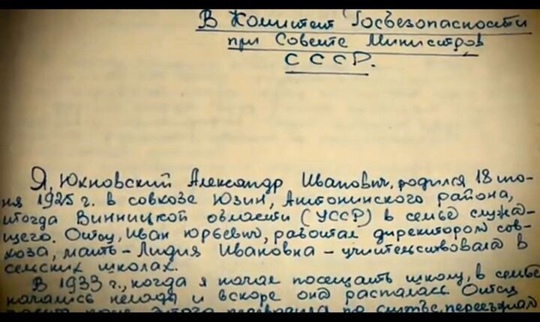 В Комитет Госбезопасности
при Совете Министров
СССР.
Я, Юхновский Александр Иванович, родился 18 ию-
ня 1925 г. в совхозе Юзин, Антонинского района,
тогда Винницкой области (УССР) в семье служа-
щего. Отец, Иван Юрьевич, работал директором сов-
хоза, мать - Лидия Ивановна - учительствовала в
сельских школах.
В 1933 г., когда я начал посещать школу, в семье
начались нелады и вскоре она распалась. Отец
после